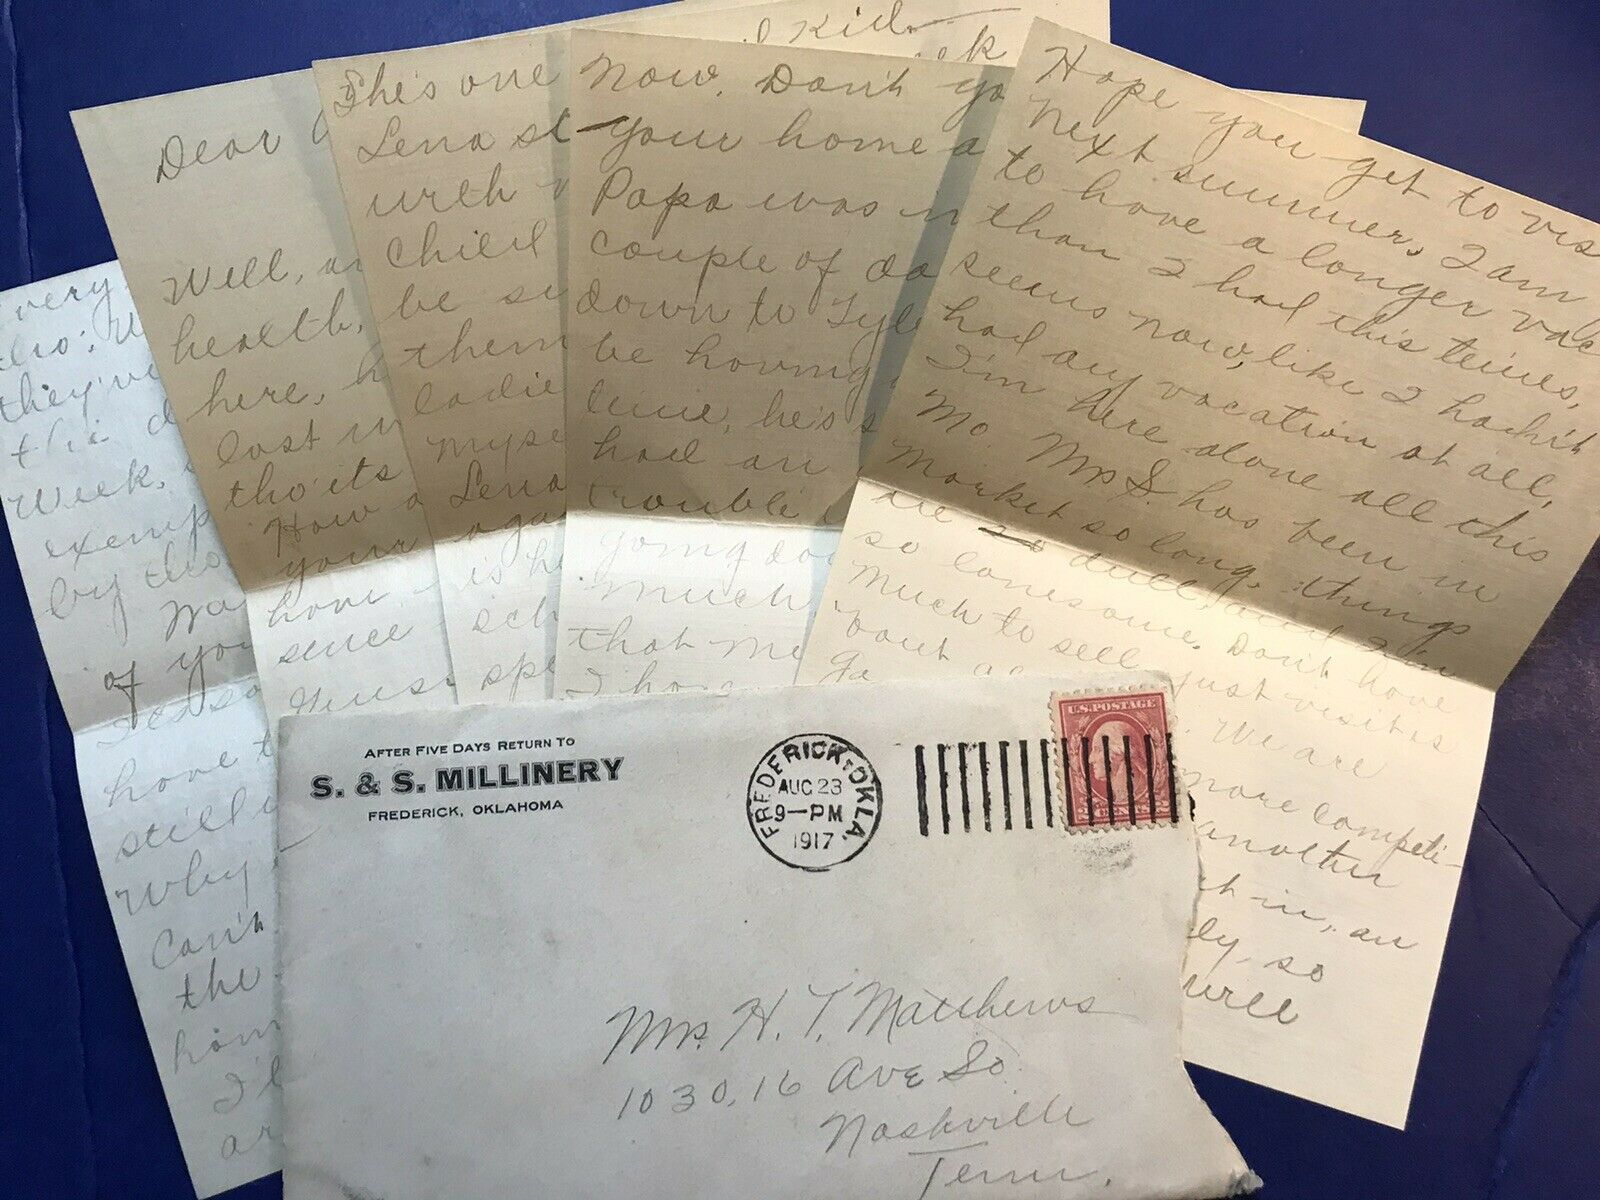 very
tho'. W
they've
the d
Week,
exemp
by tho
Wa
of you
have t
still i
Why
Can't
the
hom
I'l
ar
Dear
Well, an
health,
here, h
lost in
tho' its
How a
your
have
since
Guess
Kid
eek
She's one
Lena st
with
child
be si
them
ladie
myse
Lena
aga
is he
sch
spe
Now, Don't yo
your home a
Papa was in
couple of da
down to Tyle
be having
time, he's s
had an
trouble
going do
much
that me
I hop
Hope you get to vis
Next summer, I am
to have a longer vac
than I had this time,
seems now, like I hadn't
had any vacation at all,
I'm here alone all this
Mo. Mrs S. has been in
market so long. things
are so dull, and I'm
so lonesome. Don't have
much to sell, just visitors
'bout a
Ga
. We are
more competi-
another
t in, an
ly, so
will
AFTER FIVE DAYS RETURN TO
S. & S. MILLINERY
FREDERICK, OKLAHOMA
FREDERICK, OKLA.
AUC 23
9-PM
1917
U.S. POSTAGE
2 CENTS 2
Mrs. H. T. Matthews
1030, 16 Ave So
Nashville
Tenn.